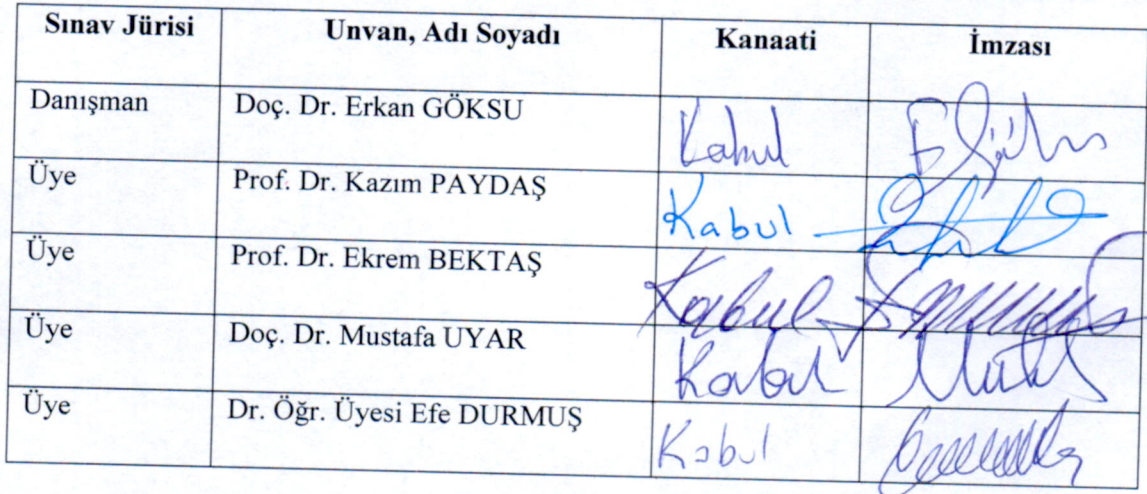 Sınav Jürisi Unvan, Adı Soyadı Kanaati İmzası
Danışman Doç. Dr. Erkan GÖKSU Kabul
Üye Prof. Dr. Kazım PAYDAŞ Kabul
Üye Prof. Dr. Ekrem BEKTAŞ Kabul
Üye Doç. Dr. Mustafa UYAR Kabul
Üye Dr. Öğr. Üyesi Efe DURMUŞ Kabul